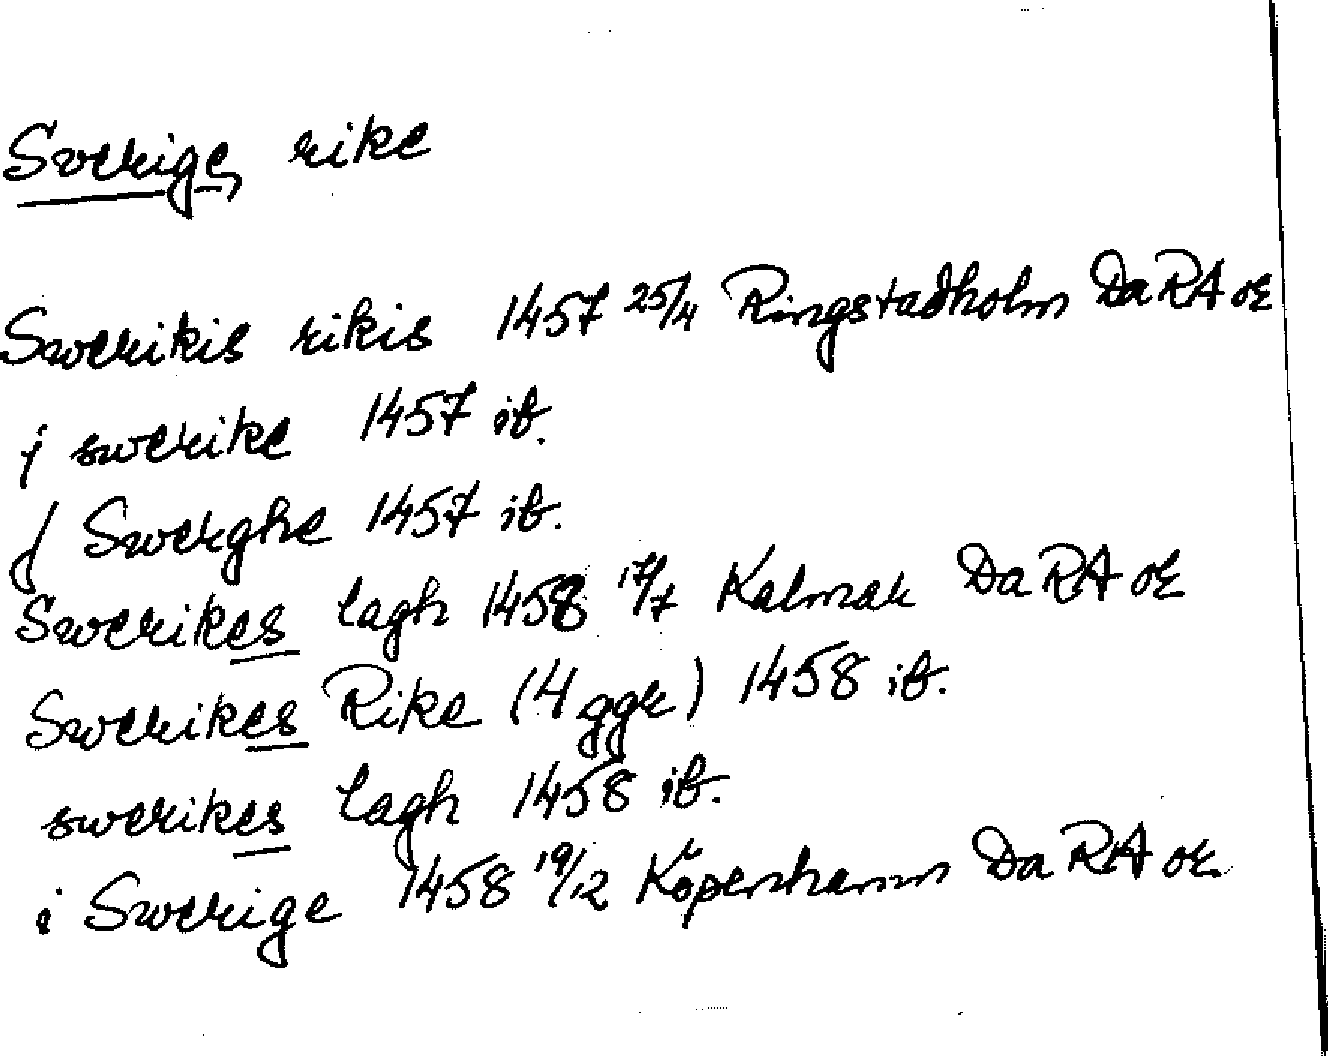 Sverige, rike
Swerikis rikis 1457 25/4 Ringstadholm DaRA or
j swerike 1457 ib.
J Swerghe 1457 ib.
Swerikes lagh 1458 17/7 Kalmar DaRA or
Swerikes Rike (4 ggr) 1458 ib.
swerikes lagh 1458 ib.
i Swerige 1458 19/12 Köpenhamn DaRA or